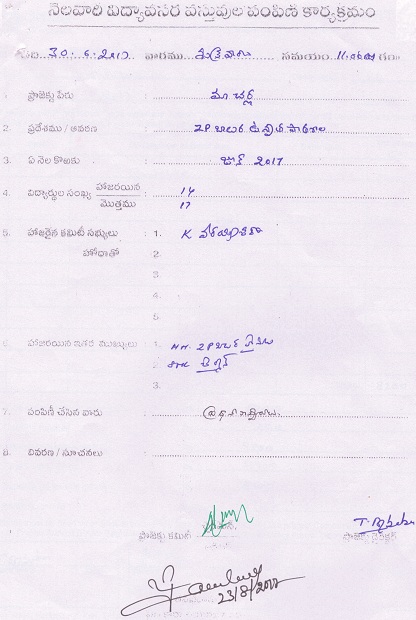 నెలవారి విద్యావసర వస్తువుల పంపిణీ కార్యక్రమం
తేది 30.6.2017 వారము శుక్రవారం సమయం 11.00
1. ప్రాజెక్టు పేరు : మాచర్ల
2. ప్రదేశము / ఆవరణ : ZP బాలుర ఉన్నత పాఠశాల
3. ఏ నెల కొఱకు : జూన్ 2017
4. విద్యార్థుల సంఖ్య హాజరయిన : 14
మొత్తము 17
5. హాజరైన కమిటీ సభ్యులు : 1. K
హోధాతో 2.
3.
4.
5
6. హాజరయిన ఇతర ముఖ్యులు : 1. HM. ZP
2.
3.
7. పంపిణీ చేసిన వారు :
8. వివరణ / సూచనలు :
ప్రాజెక్టు కమిటీ
ప్రాజెక్టు డైరెక్టర్
23/8/2017